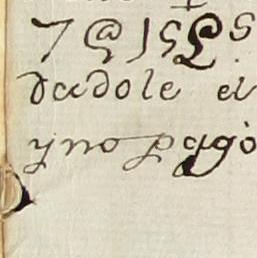 7 @ 15 ps
dadole el
y no pagò